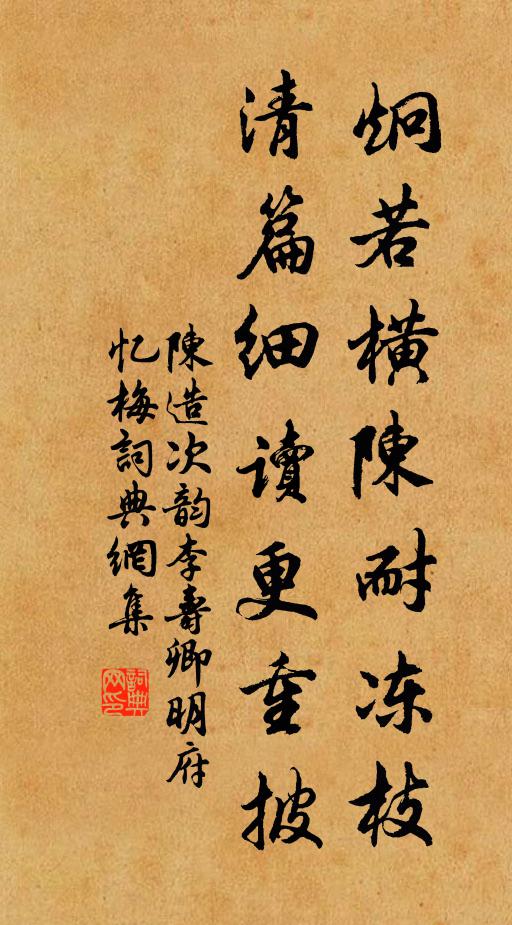 炯若橫陳耐冻枝
清篇细读更重披
陳造次韵李壽卿明府
忆梅詞典網集
詞典网印